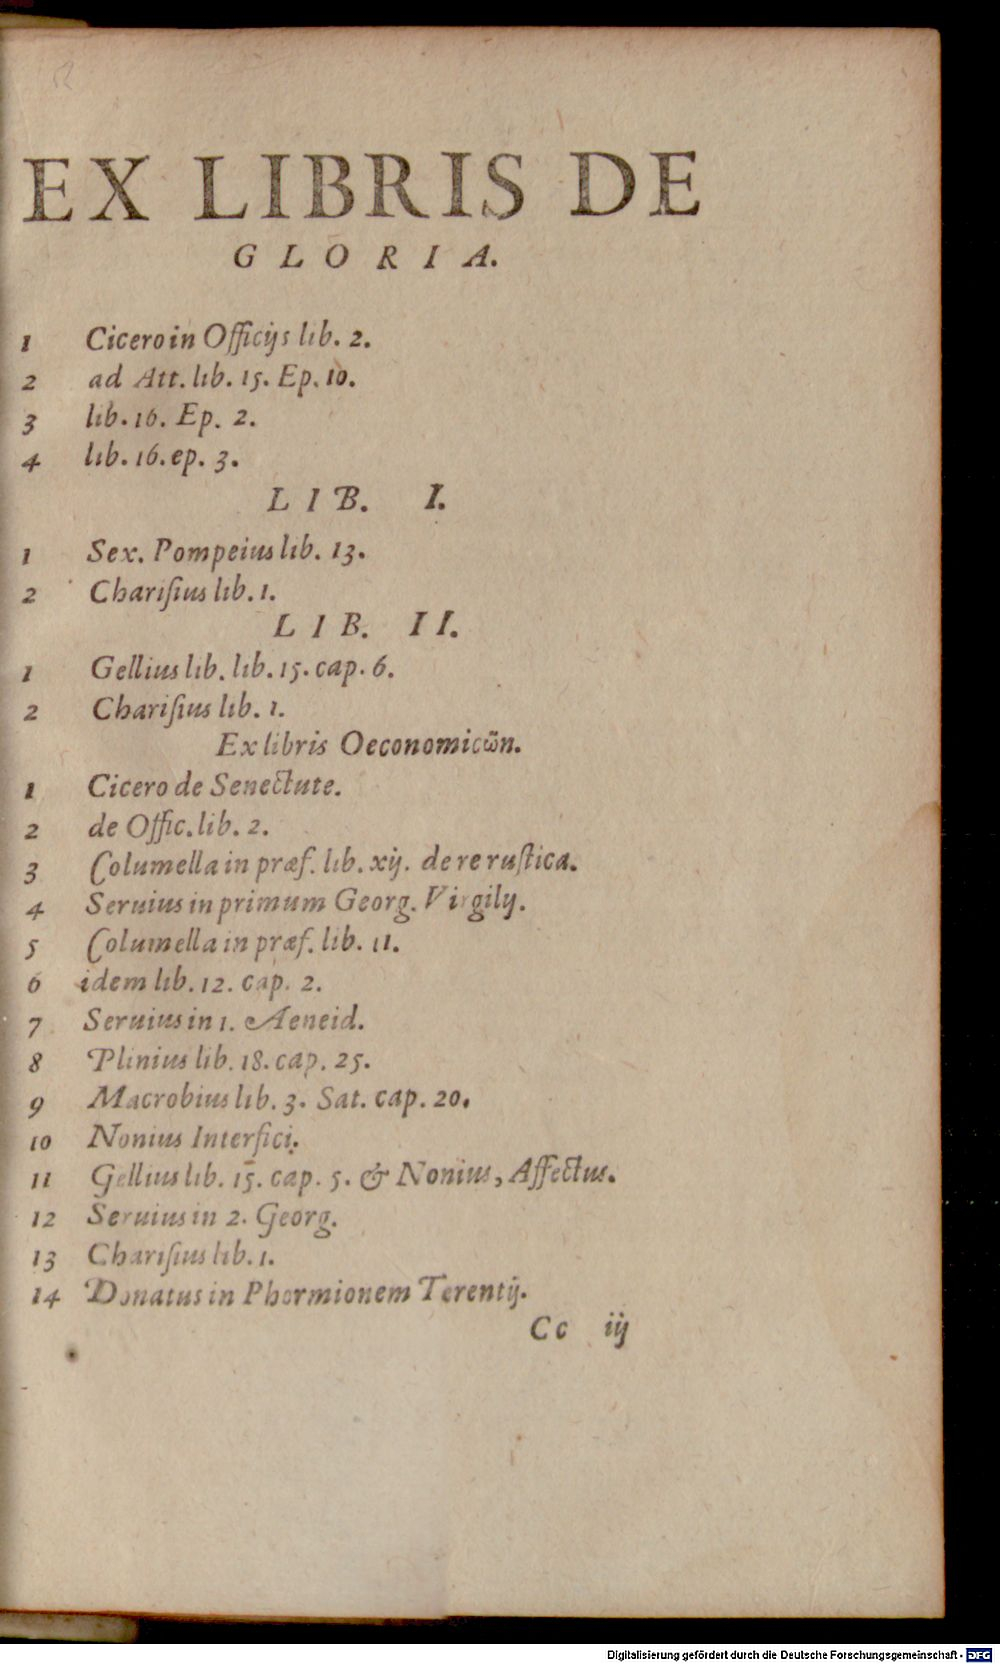 EX LIBRIS DE
GLORIA.
1 Cicero in Officijs lib. 2.
2 ad Att. lib. 15. Ep. 10.
3 lib. 16. Ep. 2.
4 lib. 16. ep. 3.
LIB. I.
1 Sex. Pompeius lib. 13.
2 Chariſius lib. 1.
LIB. II.
1 Gellius lib. lib. 15. cap. 6.
2 Chariſius lib. 1.
Ex libris Oeconomicῶn.
1 Cicero de Senectute.
2 de Offic. lib. 2.
3 Columella in præf. lib. xij. de re ruſtica.
4 Seruius in primum Georg. Virgilij.
5 Columella in præf. lib. 11.
6 idem lib. 12. cap. 2.
7 Seruius in 1. Aeneid.
8 Plinius lib. 18. cap. 25.
9 Macrobius lib. 3. Sat. cap. 20.
10 Nonius Interfici.
11 Gellius lib. 15. cap. 5. & Nonius, Affectus.
12 Seruius in 2. Georg.
13 Chariſius lib. 1.
14 Donatus in Phormionem Terentij.
Cc iij
Digitalisierung gefördert durch die Deutsche Forschungsgemeinschaft - DFG